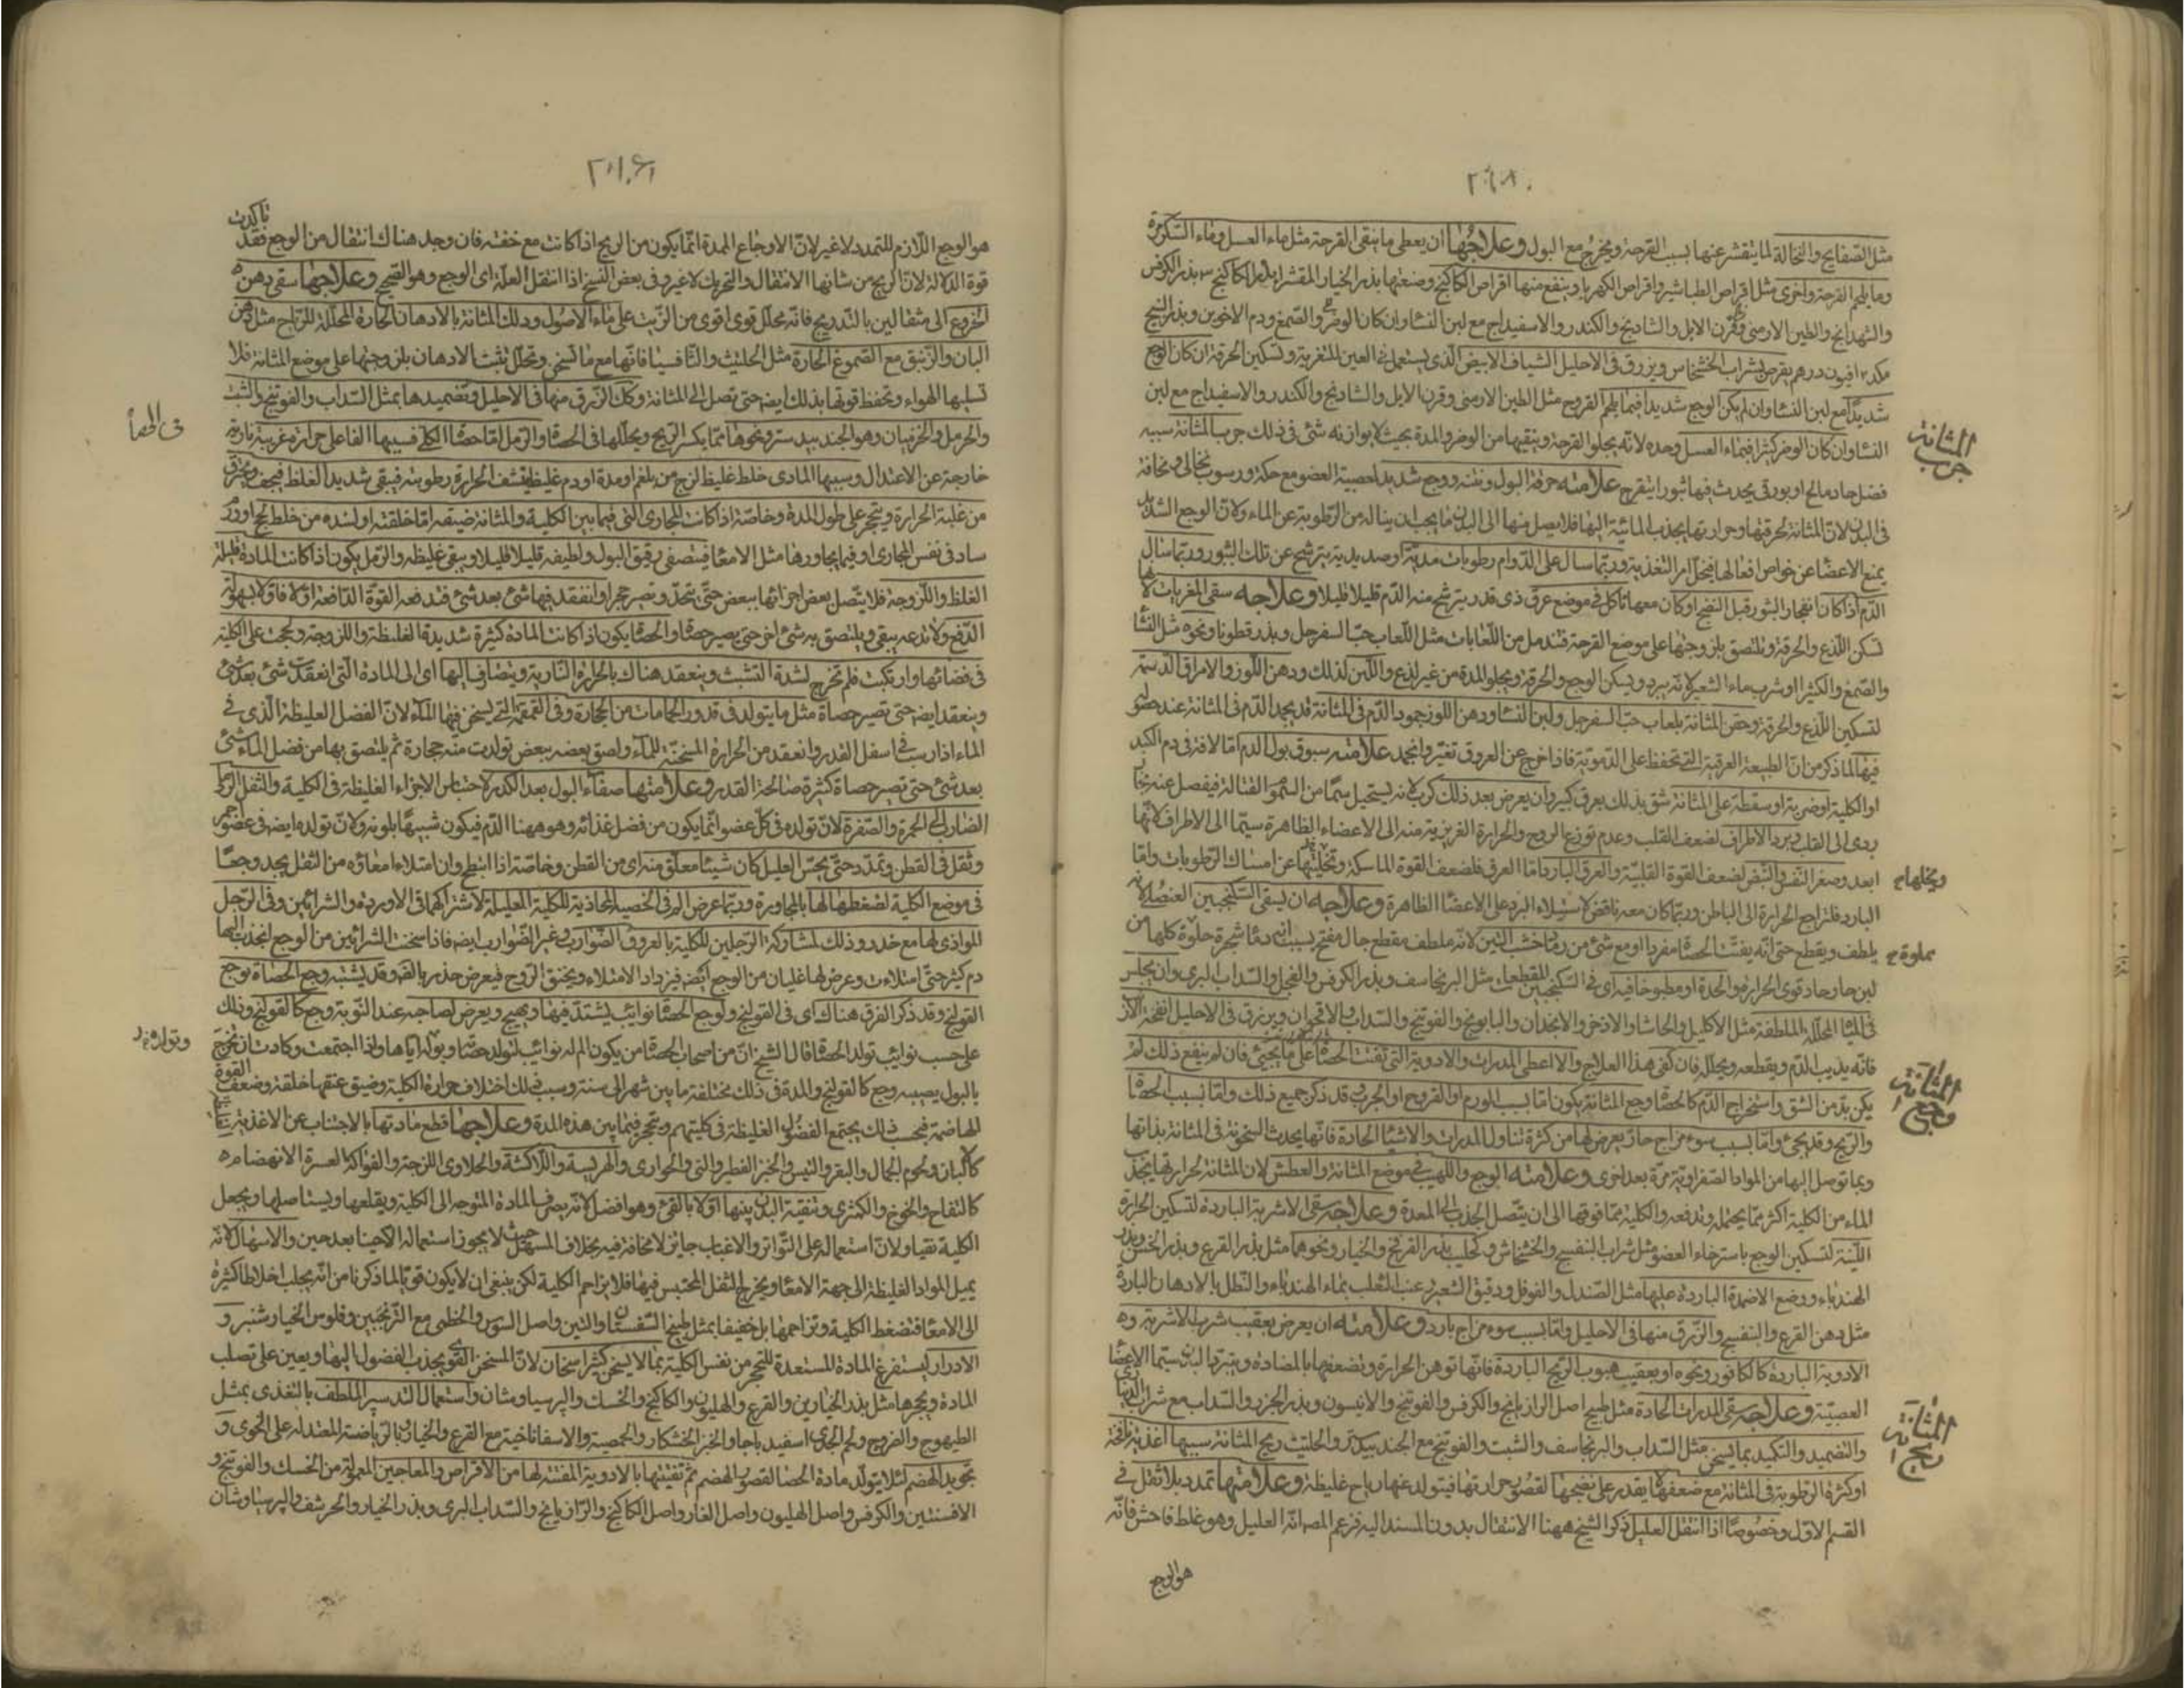 مثل الصفايح والنخالة لما يتقشر عنها بسبب القرحة ويخرج مع البول وعلاجها ان يعطى ما ينقى القرحة مثل ماء العسل وماء السكر مرة
وما يلحم القرحة اخرى مثل اقراص الطباشير واقراص الكهربا وينفع منها اقراص الكاكنج وصنعتها بذر الخيار المقشر
والشهدانج والطين الارمنى وقرن الايل والشادنج والكندر والاسفيداج مع لبن النسا وان كان الوضر والصمغ ودم الاخوين وبذر البنج
افيون درهم يقرص بشراب الخشخاش ويزرق فى الاحليل الشياف الابيض الذى يستعمل فى العين للتغرية وتسكين الحرقة ان كان الوجع
شديدا مع لبن النسا وان لم يكن الوجع شديدا فبما يلحم القروح مثل الطين الارمنى وقرن الايل والشادنج والكندر والاسفيداج مع لبن
النسا وان كان الوضر كثيرا فبماء العسل وحده لانه يجلوا القرحة وينقيها من الوضر والمدة بحيث لا يوازنه شئ فى ذلك جرب المثانة سببه
فضل حاد مالح او بورقى يحدث فيها بثورا يتقرح علامته حرقة البول ونتنه ووجع شديد لعصبية العضو مع حكة ورسوب نخالى ونحافة
فى البدن لان المثانة لحرقتها وحرارتها يجذب المائية اليها فلا يصل منها الى البدن ما يجب ان يناله من الرطوبة عن الماء ولان الوجع الشديد
يمنع الاعضا عن خواص افعالها فيختل امر التغذية وربما سال على الدوام رطوبات مدية او صديدية يترشح عن تلك البثور وربما سال
الدم اذا كان انفجار البثور قبل النضج او كان معها تاكل فى موضع عرق ذى قدر يترشح منه الدم قليلا قليلا وعلاجه سقى المغريات لانها
تسكن اللذع والحرقة وتلتصق بلزوجتها على موضع القرحة فتندمل من اللعابات مثل اللعاب حب السفرجل وبذر قطونا ونحوه مثل النشا
والصمغ والكثيرا وشرب ماء الشعير لانه يبرد ويسكن الوجع والحرقة ويجلو المدة من غير لذع واللبن لذلك ودهن اللوز والامراق الدسمة
لتسكين اللذع والحرقة وحقن المثانة بلعاب حب السفرجل ولبن النسا ودهن اللوز جمود الدم فى المثانة قد يجمد الدم فى المثانة عند حصوله
فيها لما ذكر من ان الطبيعة العرقية التى تحفظ على الدموية فاذا خرج عن العروق تغير وانجمد علامته سبوق بول الدم اما لافة فى دم الكبد
او الكلية او ضربة او سقطة على المثانة شق بذلك يعرق كبير وان يعرض بعد ذلك كرب لانه يستحيل سما من السموم القتالة فيفصل عنه بخار
ردى الى القلب وبرد الاطراف لضعف القلب وعدم توزع الروح والحرارة الغريزية منه الى الاعضاء الظاهرة سيما الى الاطراف لانها
ابعد وصغر النفس والنبض لضعف القوة القلبية والعرق البارد اما العرق فلضعف القوة الماسكة وتخليتها عن امساك الرطوبات واما
البارد فلتراجع الحرارة الى الباطن وربما كان معه نافض لاستيلاء البرد على الاعضا الظاهرة وعلاجه ان يسقى السكنجبين العنصلى لانه
يلطف ويقطع حتى انه يفتت الحصاة مفردا او مع شئ من رماد خشب التين لانه ملطف مقطع جال مفتح
لبن حار حاد قوى الحرارة والحدة او مطبوخا فيه اى فى السكنجبين المقطعات مثل البرنجاسف وبذر الكرفس والفجل والسداب البرى وان يجلس
فى المياه المحللة الملطفة مثل الاكليل والحاشا والاذخر والانجدان والبابونج والفوتنج والسداب والاقحوان ويزرق فى الاحليل انفحة الارنب
فانه يذيب الدم ويقطعه ويحلله فان كفى هذا العلاج والا اعطى المدرات والادوية التى تفتت الحصاة على ما يجيئ فان لم ينفع ذلك لم
يكن بد من الشق واستخراج الدم كالحصاة وجع المثانة يكون اما بسبب الورم او القروح او الجرب قد ذكر جميع ذلك واما بسبب الحصاة
والريح وقد يجئ واما بسبب سوء مزاج حار يعرض لها من كثرة تناول المدرات والاشياء الحادة فانها يحدث السخونة فى المثانة بذاتها
وبما توصل اليها من المواد الصفراوية مرة بعد اخرى وعلامته الوجع واللهيب فى موضع المثانة والعطش لان المثانة لحرارتها يجذب
الماء من الكلية اكثر مما يحتمل وتدفعه والكلية مما فوقها الى ان يتصل الجذب الى المعدة وعلاجه سقى الاشربة الباردة لتسكين الحرارة
اللينة لتسكين الوجع باسترخاء العضو مثل شراب البنفسج والخشخاش وكحليب بذر القرفج والخيار ونحوهما مثل بذر القرع وبذر الخس وبذر
الهندباء ووضع الاضمدة الباردة عليها مثل الصندل والفوفل ودقيق الشعير وعنب الثعلب بماء الهندباء والنطل بالادهان الباردة
مثل دهن القرع والبنفسج والزرق منها فى الاحليل واما بسبب سوء مزاج بارد وعلامته ان يعرض بعقيب شرب الاشربة و
الادوية الباردة كالكافور ونحوه او بعقيب هبوب الريح الباردة فانها توهن الحرارة وتضعفها بالمضادة وتبرد البدن سيما الاعضا
العصبية وعلاجه سقى المدرات الحادة مثل طبيخ اصل الرازيانج والكرفس والفوتنج والانيسون وبذر الجزر والسداب مع شراب
والتضميد والتكميد بما يسخن مثل السداب والبرنجاسف والشبت والفوتنج مع الجندبيدستر والحلتيت ريح المثانة سببها اغذية نافخة
او كثرة الرطوبة فى المثانة مع ضعفها لا يقدر على نضجها لقصور حرارتها فيتولد عنها رياح غليظة وعلامتها تمدد بلا ثقل فى
القسم الاول وخصوصا اذا انتقل العليل ذكر الشيخ ههنا الانتقال بدون المسند اليه فزعم المص انه العليل وهو غلط فاحش فانه
هو الوجع
جرب المثانة
وجع المثانة
ريح المثانة
هو الوجع اللازم للتمدد لا غير لان الاوجاع الممددة انما يكون من الريح اذا كانت مع خفة فان وجد هناك انتقال من الوجع فقد تاكدت
قوة الدلالة لان الريح من شانها الانتقال والتحريك لا غير وفى بعض النسخ اذا انتقل العلة اى الوجع وهو الصحيح وعلاجها سقى دهن
الخروع الى مثقالين بالتدريج فانه محلل قوى اقوى من الزيت على ماء الاصول ودلك المثانة بالادهان الحارة المحللة للرياح مثل دهن
البان والزنبق مع الصموغ الحارة مثل الحلتيت والثافسيا فانها مع ما تسخن وتحلل تثبت الادهان بلزوجتها على موضع المثانة فلا
تسلبها الهواء وتحفظ قوتها بذلك ايضه حتى تصل الى المثانة وكك الزرق منها فى الاحليل وتضميدها بمثل السداب والفوتنج والشبت
والحرمل والخزميان وهو الجندبيدستر ونحوها مما يكسر الريح ويحللها فى الحصاة والرمل اما حصاة الكلى فسببها الفاعلى حرارة غريبة نارية
خارجة عن الاعتدال وسببها المادى خلط غليظ لزج من بلغم او مدة او دم غليظ ينشف الحرارة رطوبته فيبقى شديد الغلظ فيجف ويحترق
من غلبة الحرارة ويتحجر على طول المدة وخاصة اذا كانت المجارى التى فيما بين الكلية والمثانة ضيقه اما خلقة او لسدة من خلط لحج او ورم
ساد فى نفس المجارى او فيما يجاورها مثل الامعا فيتصفى رقيق البول ولطيفه قليلا قليلا ويبقى غليظه والرمل يكون اذا كانت المادة قليلة
الغلظ واللزوجة فلا يتصل بعض اجزائها ببعض حتى يتحد ويصير حجرا وانعقد فيها شئ بعد شئ فتدفعه القوة الدافعة اولا فاولا بسهولة
الدفع ولا تدعه يبقى ويلتصق به شئ اخر حتى يصير حصاة والحصاة يكون اذا كانت المادة كثيرة شديدة الغلظة واللزوجة ولحجت على الكلية
فى فضائها وارتكبت فلم تخرج لشدة التشبث وينعقد هناك بالحرارة النارية وينضاف اليها اى الى المادة التى انعقدت شئ بعد شئ
وينعقد ايضه حتى تصير حصاة مثل ما يتولد فى قدور الحمامات من الحجارة وفى القمقمة التى يسخن فيها الماء لان الفضل الغليظة الذى فى
الماء اذا رسب فى اسفل القدر وانعقد من الحرارة المسخنة للماء ولصق بعضه ببعض تولدت منه حجارة ثم يلتصق بها من فضل الماء شئ
بعد شئ حتى تصير حصاة كثيرة صالحة القدر وعلامتها صفاء البول بعد الكدر لاحتباس الاجزاء الغليظة فى الكلية والثفل الرملى
الضارب الى الحمرة والصفرة لان تولده فى كل عضو انما يكون من فضل غذائه وهو ههنا الدم فيكون شبيها بلونه ولان تولده ايضه فى عضو احمر
وثقل فى القطن وتمدد حتى يحس العليل كان شيئا معلق منه اى من القطن وخاصة اذا انبطح وان امتلاء امعاؤه من الثفل يجد وجعا
فى موضع الكلية لضغطها لها بالمجاورة وربما عرض الم فى الخصية المحاذية للكلية العليلة لاشتراكهما فى الاوردة والشرائين وفى الرجل
الموازى لها مع خدر وذلك لمشاركة الرجلين للكلية بالعروق الضوارب وغير الضوارب ايضه فاذا سخنت الشرائين من الوجع انجذب اليها
دم كثير حتى امتلاءت وعرض لها غليان من الوجع ايضه فيزداد الامتلاء ويختنق الروح فيعرض خدر بالقه وقد يشتبه وجع الحصاة بوجع
القولنج وقد ذكر الفرق هناك اى فى القولنج ولوجع الحصاة نوائب يشتد فيها ويهيج ويعرض لصاحبه عند النوبة وجع كالقولنج وذلك
على حسب نوائب تولد الحصاة قال الشيخ ان من اصحاب الحصاة من يكون الم له نوائب لتولد حصاة وبوله اياها ولذا اجتمعت وكادت ان تخرج
بالبول يصيبه وجع كالقولنج والمدة فى ذلك مختلفة ما بين شهر الى سنة وسبب ذلك اختلاف حرارة الكلية وضيق عنقها خلقة وضعف القوة
الهاضمة فبحسب ذلك يجتمع الفضول الغليظة فى كليتهم ويتحجر فيما بين هذه المدة وعلاجها قطع مادتها بالاجتناب عن الاغذية
كالالبان ولحوم الجمال والبقر والتيس والخبز الفطير والنى والحوارى والهريسة واللاكشة والحلاوى اللزجة والفواكه العسرة الانهضام
كالتفاح والخوخ والكمثرى وتنقية البدن بينها اولا بالقئ وهو افضل لانه يصرف المادة المتوجه الى الكلية ويقلعها ويستاصلها ويجعل
الكلية نقيا ولان استعماله على التواتر والاغباب جائز لا مخافة فيه بخلاف المسهل حيث لا يجوز استعماله الا حينا بعد حين والاسهال لانه
يميل المواد الغليظة الى جهة الامعا ويخرج الثفل المحتبس فيها فلا يزاحم الكلية لكن ينبغى ان لا يكون قويا لما ذكرنا من انه يجلب اخلاطا كثيرة
الى الامعا فتضغط الكلية وتزاحمها بل خفيفا بمثل طبيخ السفستان والتين واصل السوس والخطمى مع الترنجبين وفلوس الخيار شنبر و
الادرار ليستفرغ المادة المستعدة للتحجر من نفس الكلية بما لا يسخن كثيرا سخان لان المسخن القوى يجذب الفضول اليها ويعين على تصلب
المادة ويحجرها مثل بذر الخيارين والقرع والهليون والكاكنج والخسك والبرسياوشان واستعمال التدبير الملطف بالتغذى بمثل
الطيهوج والفروج ولحم الجدى اسفيدباجا والخبز الخشكار والحمصية والاسفاناخية مع القرع والخيار وبالرياضة المعتدلة على الخوى و
تجويد الهضم لئلا يتولد مادة الحصاة لقصور الهضم ثم تفتيتها بالادوية المفتتة لها من الاقراص والمعاجين المعمولة من الحسك والفوتنج و
الافسنتين والكرفس واصل الهليون واصل الغار واصل الكاكنج والرازيانج والسداب البرى وبذر الخيار والحرشف والبرسياوشان
فى الحصاة